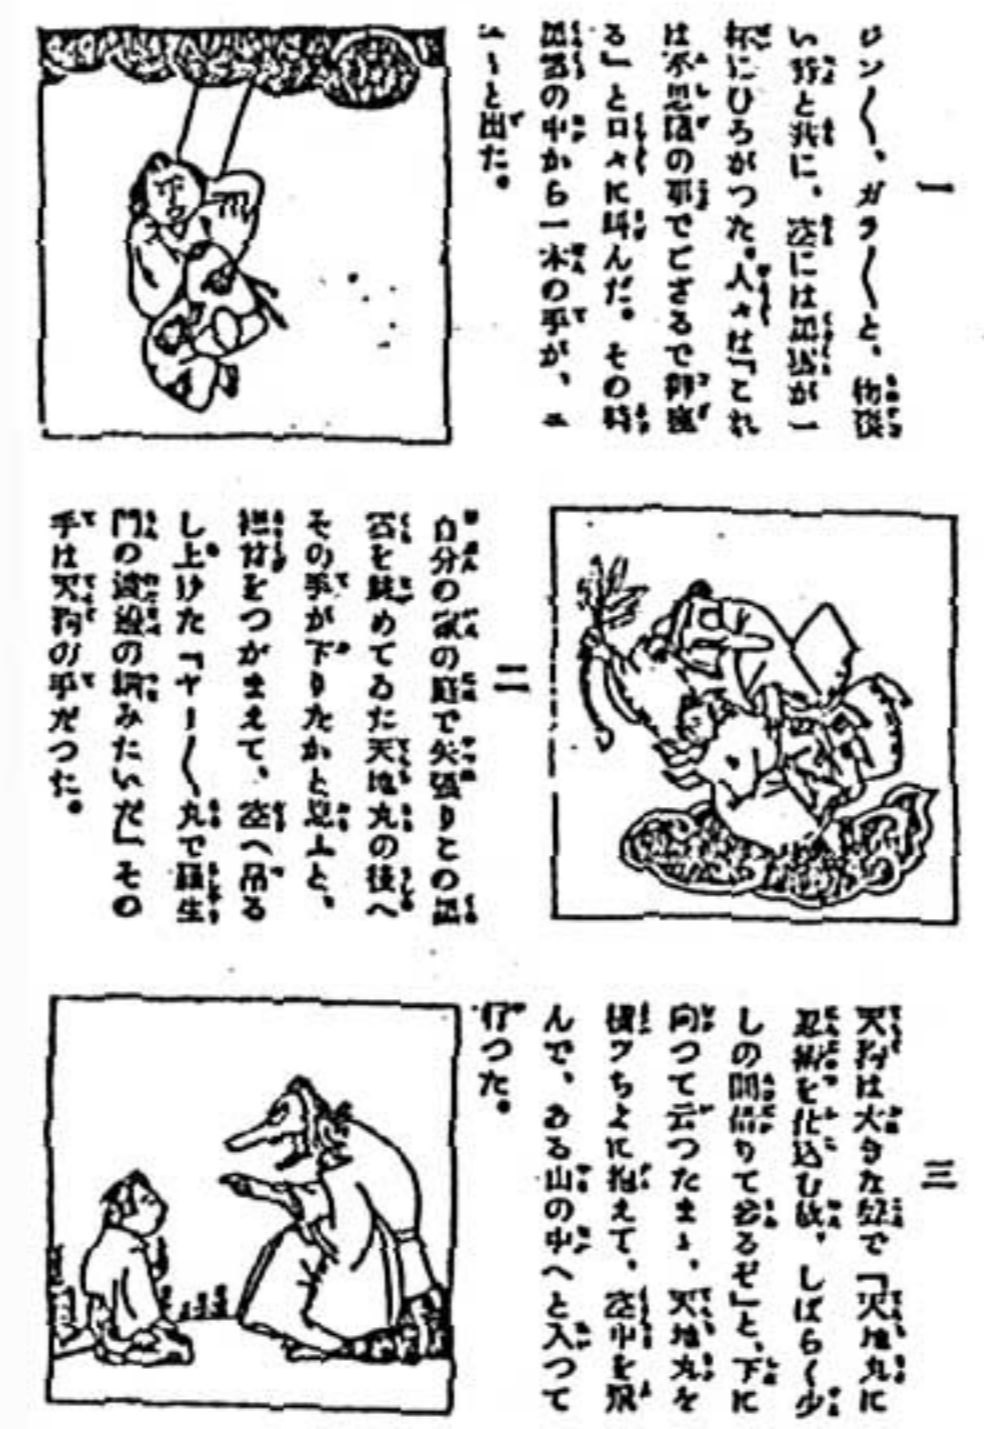 一
ジン〱、ガラ〱と、物凄
い音と共に、空には黒雲が一
杯にひろがつた。人々は「これ
は不思議の事でござるで御座
る」と口々に叫んだ。その時
黒雲の中から一本の手が、ニ
ユーと出た。
二
自分の家の庭で矢張りこの黒
雲を眺めてゐた天地丸の後へ
その手が下りたかと思ふと、
襟首をつかまえて、空へ吊る
し上げた「ヤー〱丸で羅生
門の渡辺の綱みたいだ」その
手は天狗の手だつた。
三
天狗は大きな聲で「天地丸に
忍術を仕込む故、しばらく少
しの間借りて參るぞ」と、下に
向つて云つたまゝ、天地丸を
横ツちよに抱えて、空中を飛
んで、ある山の中へと入つて
行つた。